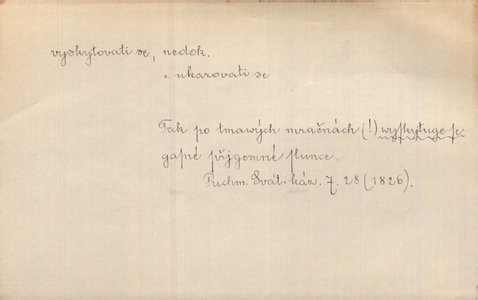 vyskytovati se, nedok.
= ukazovati se
Tak po tmawých mračnách (!) wyſkytuge ſe
gaſné přjgemné ſlunce.
Puchm. Svát. káz. 7. 28 (1826).